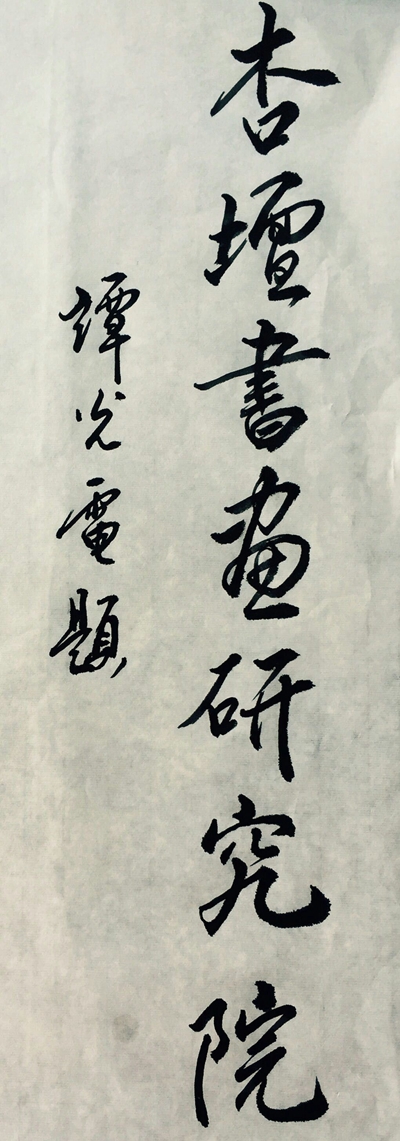 杏壇書画研究院
譚光雷題